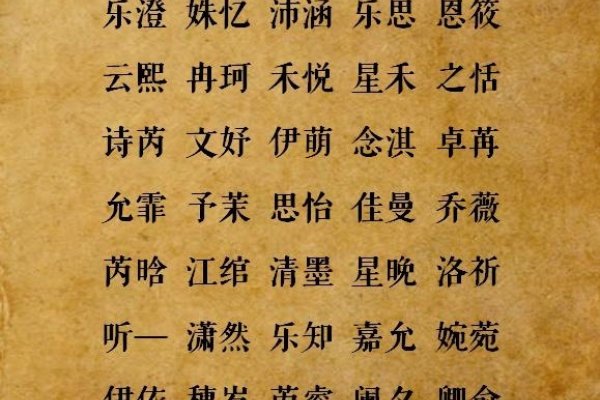 乐澄 姝忆 沛涵 乐思 恩筱
云熙 冉珂 禾悦 星禾 之恬
诗芮 文妤 伊萌 念淇 卓苒
允霏 予茉 思怡 佳曼 乔薇
芮晗 江绾 清墨 星晚 洛祈
听一 潇然 乐知 嘉允 婉菀
伊依 穗岁 芮睿 闻夕 卿俞